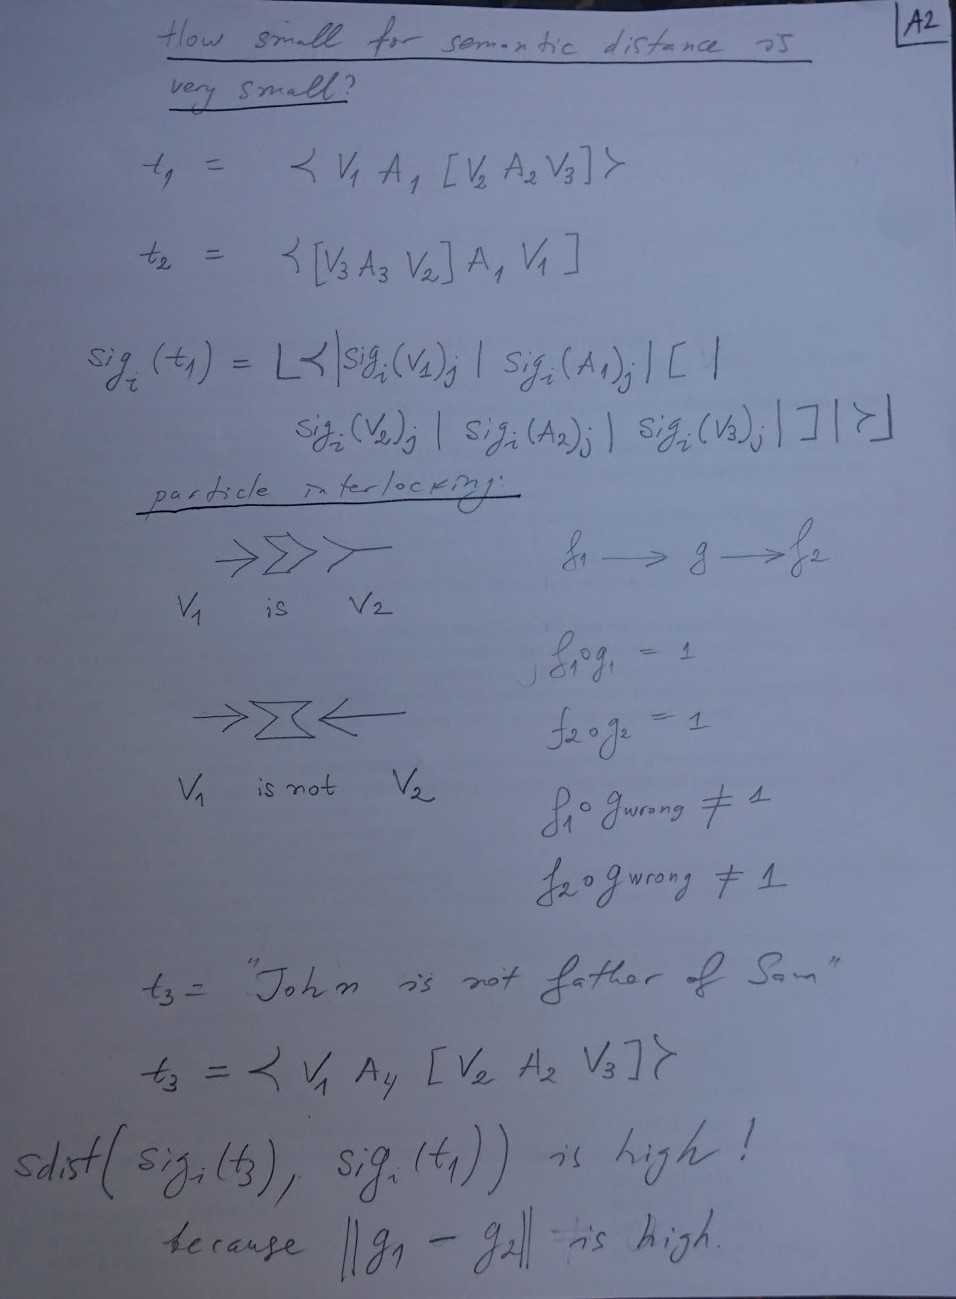 A2
How small for semantic distance is
very small?
t₁ = ≺ V₁ A₁ [V₂ A₂ V₃] ≻
t₂ = ≺ [V₃ A₃ V₂] A₁ V₁ ]
sigᵢ(t₁) = ⌊≺|sigᵢ(V₁)ⱼ | sigᵢ(A₁)ⱼ | [ |
sigᵢ(V₂)ⱼ | sigᵢ(A₂)ⱼ | sigᵢ(V₃)ⱼ | ] | ≻⌋
particle interlocking:
f₁ → g → f₂
V₁ is V₂
f₁∘g₁ = 1
f₂∘g₂ = 1
V₁ is not V₂
f₁∘g wrong ≠ 1
f₂∘g wrong ≠ 1
t₃ = "John is not father of Sam"
t₃ = ≺ V₁ A₄ [V₂ A₂ V₃] ≻
sdist(sigᵢ(t₃), sigᵢ(t₁)) is high!
because ||g₁ − g₂|| is high.